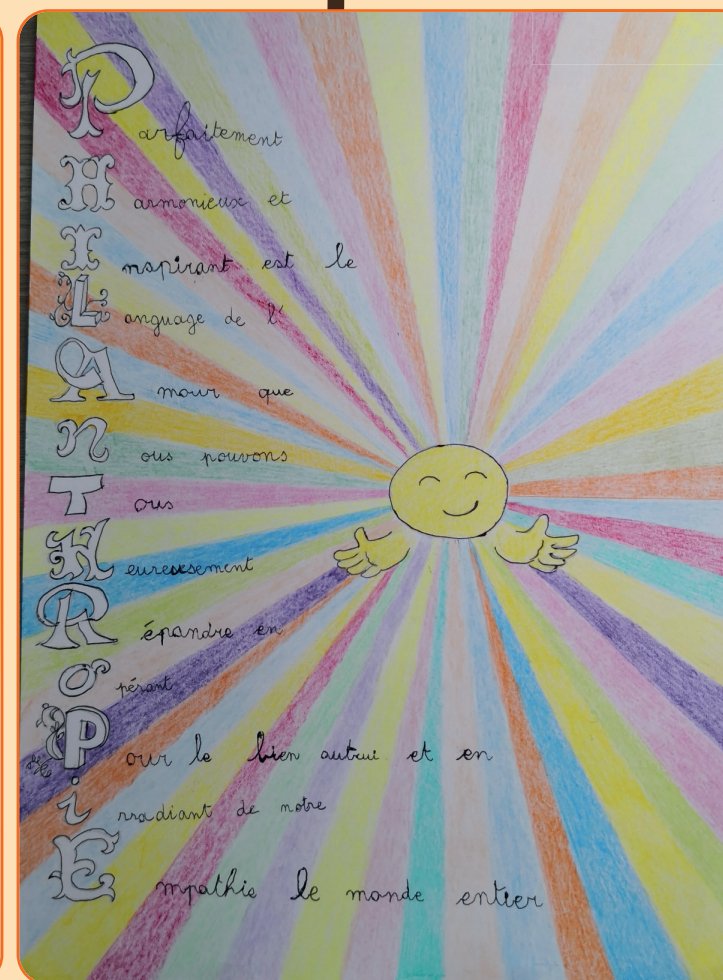 Parfaitement
Harmonieux et
Inspirant est le
Language de l'
Amour que
Nous pouvons
Tous
Heureusement
Répandre en
Opérant
Pour le bien autrui et en
irradiant de notre
Empathie le monde entier